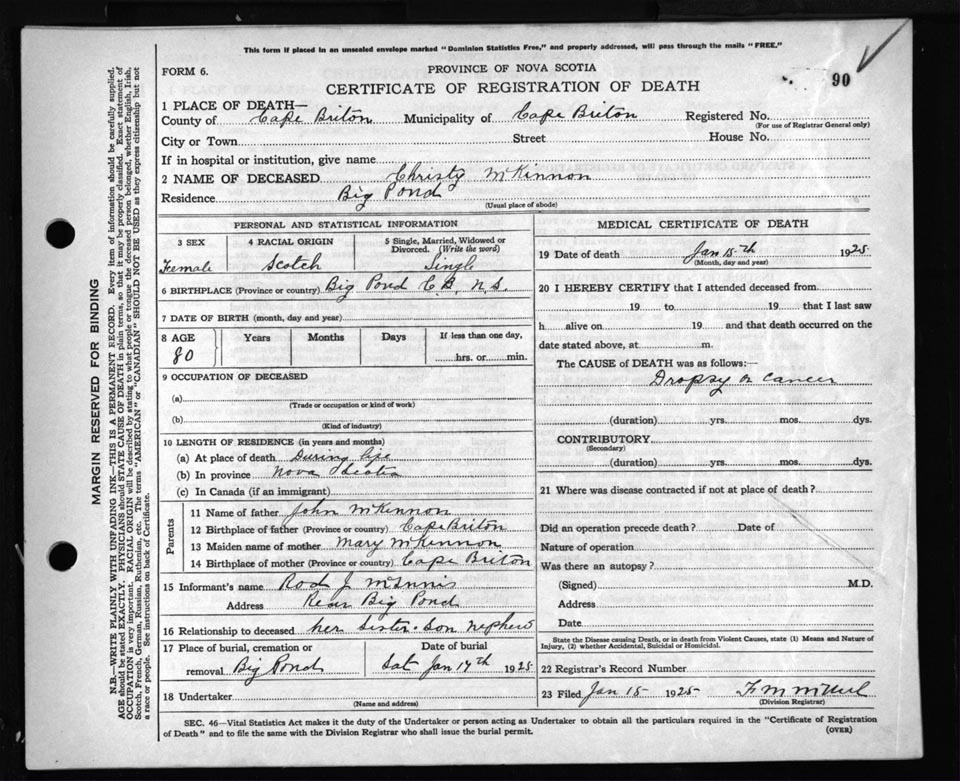 This form if placed in an unsealed envelope marked "Dominion Statistics Free," and properly addressed, will pass through the mails "FREE."
FORM 6.
PROVINCE OF NOVA SCOTIA
90
CERTIFICATE OF REGISTRATION OF DEATH
1 PLACE OF DEATH—
County of Cape Briton Municipality of Cape Briton Registered No.
(For use of Registrar General only)
City or Town Street House No.
If in hospital or institution, give name
2 NAME OF DECEASED Christy McKinnon
Residence Big Pond
(Usual place of abode)
PERSONAL AND STATISTICAL INFORMATION
3 SEX 4 RACIAL ORIGIN 5 Single, Married, Widowed or Divorced. (Write the word)
Female Scotch Single
6 BIRTHPLACE (Province or country) Big Pond C.B. N.S.
7 DATE OF BIRTH (month, day and year)
8 AGE Years Months Days If less than one day,
80 hrs. or min.
9 OCCUPATION OF DECEASED
(a)
(Trade or occupation or kind of work)
(b)
(Kind of industry)
10 LENGTH OF RESIDENCE (in years and months)
(a) At place of death During life
(b) In province Nova Scotia
(c) In Canada (if an immigrant)
Parents
11 Name of father John McKinnon
12 Birthplace of father (Province or country) Cape Briton
13 Maiden name of mother Mary McKinnon
14 Birthplace of mother (Province or country) Cape Briton
15 Informant's name Rod J. McInnis
Address Rear Big Pond
16 Relationship to deceased her Sister Son nephew
17 Place of burial, cremation or removal Big Pond
Date of burial
Sat Jan 17th 1925
18 Undertaker
(Name and address)
MEDICAL CERTIFICATE OF DEATH
19 Date of death Jan 15th 1925
(Month, day and year)
20 I HEREBY CERTIFY that I attended deceased from
19 to 19 that I last saw
h alive on 19 and that death occurred on the
date stated above, at m.
The CAUSE of DEATH was as follows:—
Dropsy or Cancer
(duration) yrs. mos. dys.
CONTRIBUTORY
(Secondary)
(duration) yrs. mos. dys.
21 Where was disease contracted if not at place of death?
Did an operation precede death? Date of
Nature of operation
Was there an autopsy?
(Signed) M.D.
Address
Date
State the Disease causing Death, or in death from Violent Causes, state (1) Means and Nature of
Injury, (2) whether Accidental, Suicidal or Homicidal.
22 Registrar's Record Number
23 Filed Jan 15 1925
(Division Registrar)
SEC. 46—Vital Statistics Act makes it the duty of the Undertaker or person acting as Undertaker to obtain all the particulars required in the "Certificate of Registration
of Death" and to file the same with the Division Registrar who shall issue the burial permit.
(OVER)
MARGIN RESERVED FOR BINDING
N.B.—WRITE PLAINLY WITH UNFADING INK—THIS IS A PERMANENT RECORD. Every item of information should be carefully supplied.
AGE should be stated EXACTLY. PHYSICIANS should STATE CAUSE OF DEATH in plain terms, so that it may be properly classified. Exact statement of
OCCUPATION is very important. RACIAL ORIGIN will be described by stating to what people or tongue the deceased person belonged, whether English, Irish,
Scotch, French, German, Russian, Ruthenian, etc. The terms "AMERICAN" or "CANADIAN" SHOULD NOT BE USED as they express citizenship but not
a race or people. See instructions on back of Certificate.